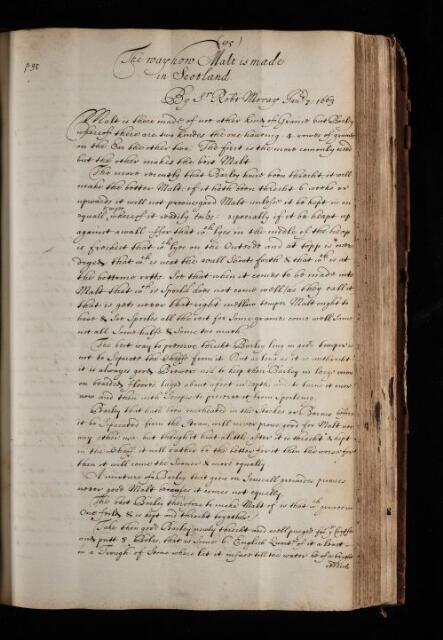 p 95
(95)
The way how Malt is made
in Scotland
By Sr Robt Moray Janry 7. 1663
Malt is there made of not other kind of Graine but Barley
whereof there are two kindes the one having 4 rowes of graines
on the Ear the other two. The first is the more comonly used
but the other makes the best Malt
The more recently that Barley hath been thresht it will
make the better Malt: if it hath been thresht 6 weeks or
upwards it will not prove good Malt unless it be kept in an
equall temper whereof it readily failes: especially if it be heapt up
against a wall. ffor that wch lyes in the middle of the heap
is freshest that wch lyes on the Outside and at topp is over
dryed that wch is next the wall shoots forth & that wch is at
the bottome rotts. Soe that when it comes to be made into
Malt that wch is Spoild does not come well (as they call it
that is gets never that right mellow temper Malt ought to
have & soe Spoiles all the rest for Some graines come well Some
not all Some halfe & Some too much
The best way to preserve thresht Barley long in good temper is
not to Separate the Chaffe from it. But as long as it is unthresht
it is always good. Brewers use to keep their Barley in large roomes
on boarded floores layed about a foot in depth and to turne it over
now and then with Scoopes to preserve it from Spoileing
Barley that hath been overheated in the Stackes or Barnes before
it be Separated from the Straw, will never prove good for Malt nor
any other use. but though it heat a little after it is thresht & kept
in the Chaff it will rather be the better for it then the worse for
then it will come the Sooner & more equally
A mixture of Barley that grew on Severall grounds proves
never good Malt because it comes not equally
The best Barley therefore to make Malt of is that wch growes in
One field & is kept and thresht together
Take then good Barley newly thresht and well purged from ye chaff
and putt 8 Boles, that is Some 6 English Quarters of it
in a Trough of Stone where let it infuse till the water be of a bright